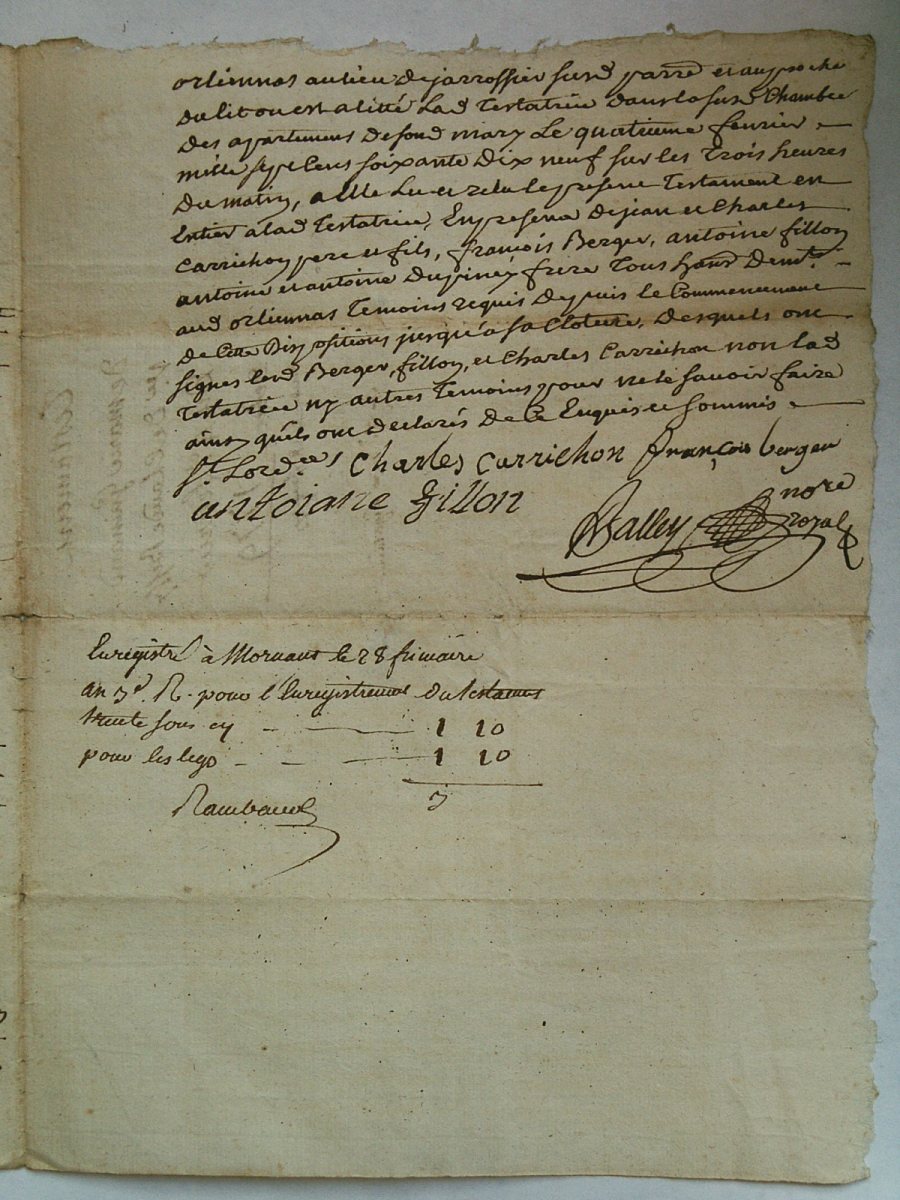 orliennas au lieu de jarrossier susd parre et au proche
du lit ou est alitté Lad Testatrice dans la susd Chambre
des apartemens de sond mary Le quatrieme fevrier
mille sept Cens soixante Dix neuf sur les Trois heures
Du matin, a Elle Lu et relu le present Testament en
Entier a lad Testatrice, En presence de jean et Charles
Carrichon pere et fils, françois Berger, antoine fillon
antoine et antoine frere Tous hants dem.t
aud orliennas Temoins requis depuis le Commencement
de Cette Dispositions jusqu'a sa Cloture, Desquels ont
signes lesd Berger, fillon, et Charles Carrichon non lad
Testatrice ny autres Temoins pour ne le savoir faire
ainsy qu'ils ont declarés De Ce Enquis et sommis
Charles Carrichon françois berger
antoiane fillon
Balley nore
royal
Enregistré à Mornant le 28 frimaire
an 3e. R. pour l'Enregistrement du testament
trente sous cy 1 10
pour les legs 1 10
3
Rambaud